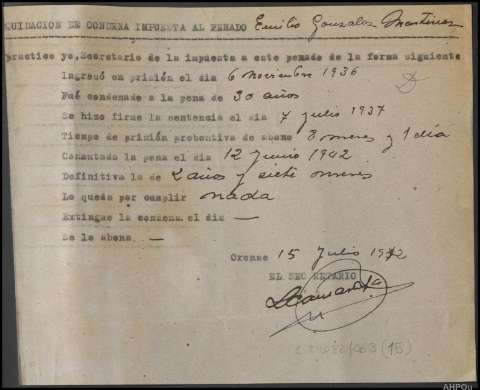 QUIDACION DE CONDENA IMPUESTA AL PENADO Emilio Gonzalez Martinez
practico yo, Secretario de la impuesta a este penado de la forma siguiente
Ingresó en prisión el dia 6 Noviembre 1936
Fué condenado a la pena de 30 años
Se hizo firme la sentencia el dia 7 julio 1937
Tiempo de prisión preventiva de abono 8 meses y 1 día
Conmutada la pena el dia 12 Junio 1942
Definitiva la de 2 años y siete meses
Le queda por cumplir nada
Extingue la condena el dia —
Se le abona —
Orense 15 Julio 1942
EL SECRETARIO
(15)
AHPOu